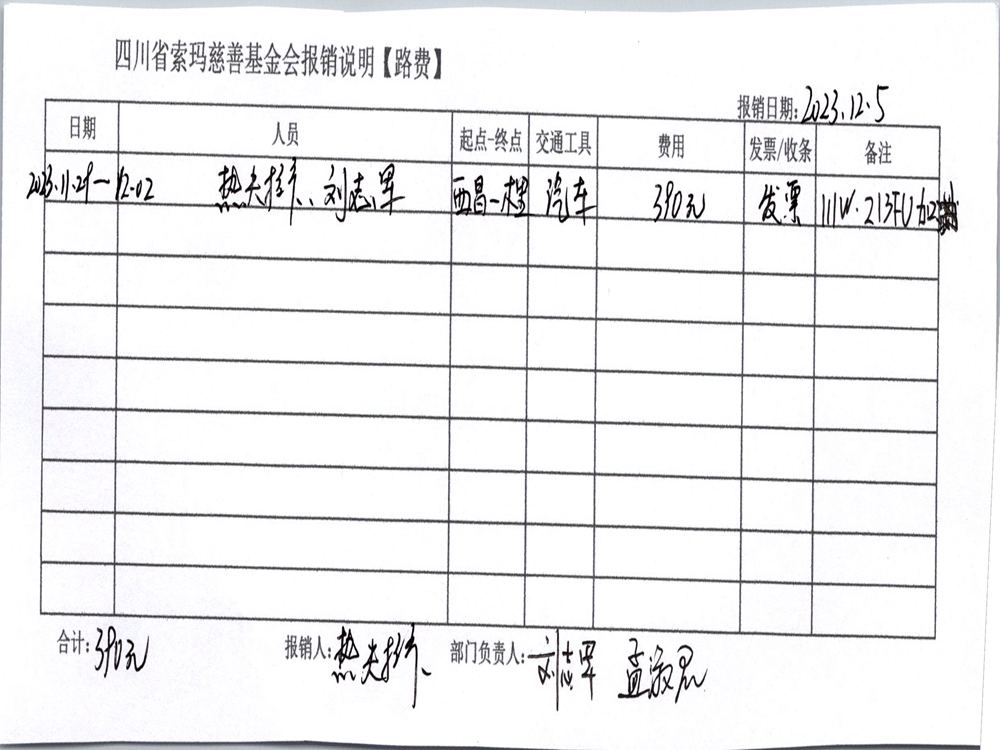 四川省索玛慈善基金会报销说明【路费】
报销日期：2023.12.5
日期 人员 起点-终点 交通工具 费用 发票/收条 备注
2023.11.29—12.02 热夫拉、刘志军 西昌— 汽车 390元 发票 川W·213FU 加
合计：390元 报销人：热夫拉 部门负责人：刘志军 孟